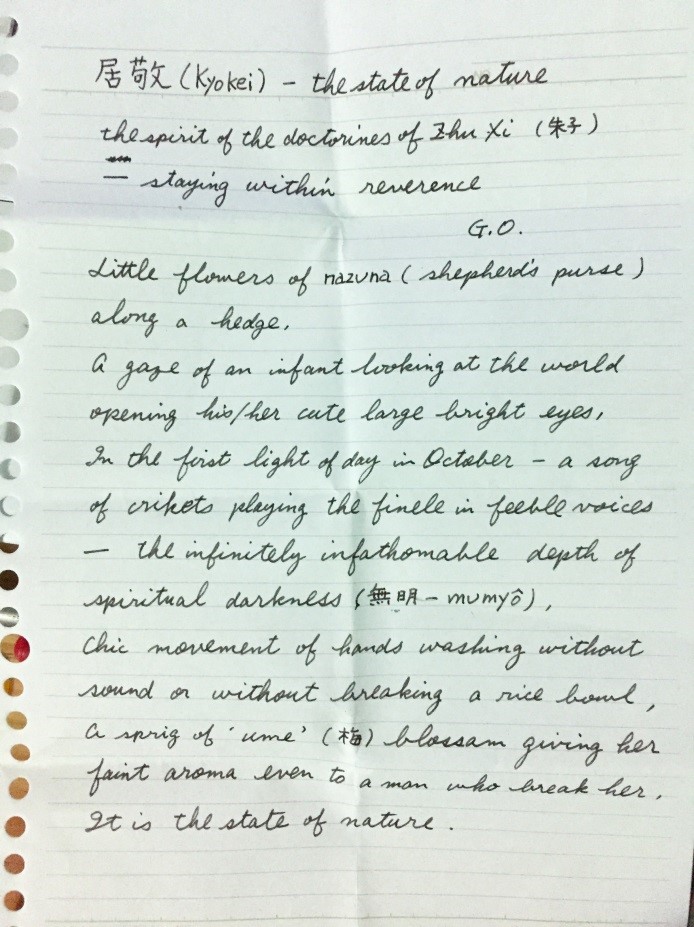 居敬 (Kyokei) – the state of nature
the spirit of the doctorines of Zhu Xi (朱子)
— staying within reverence
G.O.
Little flowers of nazuna (shepherd's purse)
along a hedge,
A gaze of an infant looking at the world
opening his/her cute large bright eyes,
In the first light of day in October – a song
of crikets playing the finele in feeble voices
— the infinitely infathomable depth of
spiritual darkness (無明 – mumyô),
Chic movement of hands washing without
sound or without breaking a rice bowl,
A sprig of 'ume' (梅) blossam giving her
faint aroma even to a man who break her,
It is the state of nature.